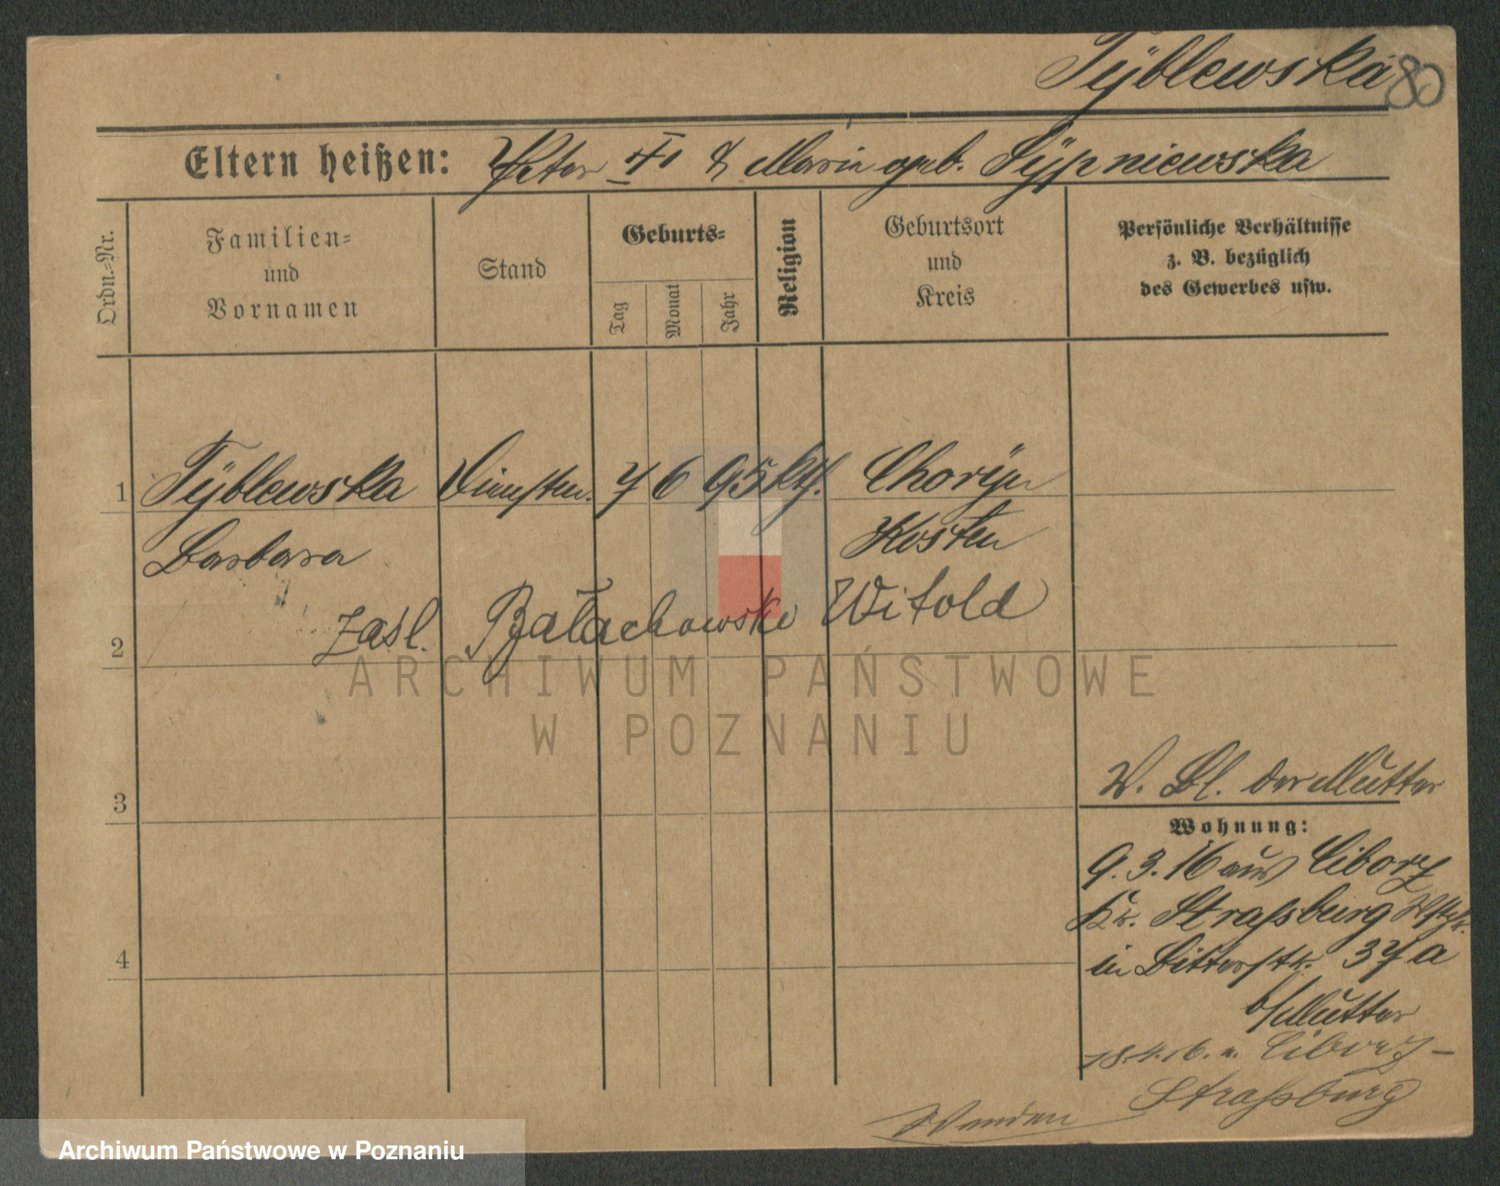 Tyblewska 80
Eltern heißen: Peter & Maria geb. Sypniewska
Ordn.=Nr.
Familien=
und
Vornamen
Stand
Geburts=
Tag
Monat
Jahr
Religion
Geburtsort
und
Kreis
Persönliche Verhältnisse
z. B. bezüglich
des Gewerbes usw.
1 Tyblewska Dienstm. 7 6 95 kth. Choryn
Barbara Kosten
zasl. Bałachowski Witold
2
ARCHIWUM PAŃSTWOWE
W POZNANIU
3
W. Bl. der Mutter
Wohnung:
9.3.16 aus Ciborz
Kr. Straßburg Wstpr.
4
in Bitterstr. 37a
b/Mutter
18.4.16. n. Ciborz-
Straßburg
Wenden
Archiwum Państwowe w Poznaniu